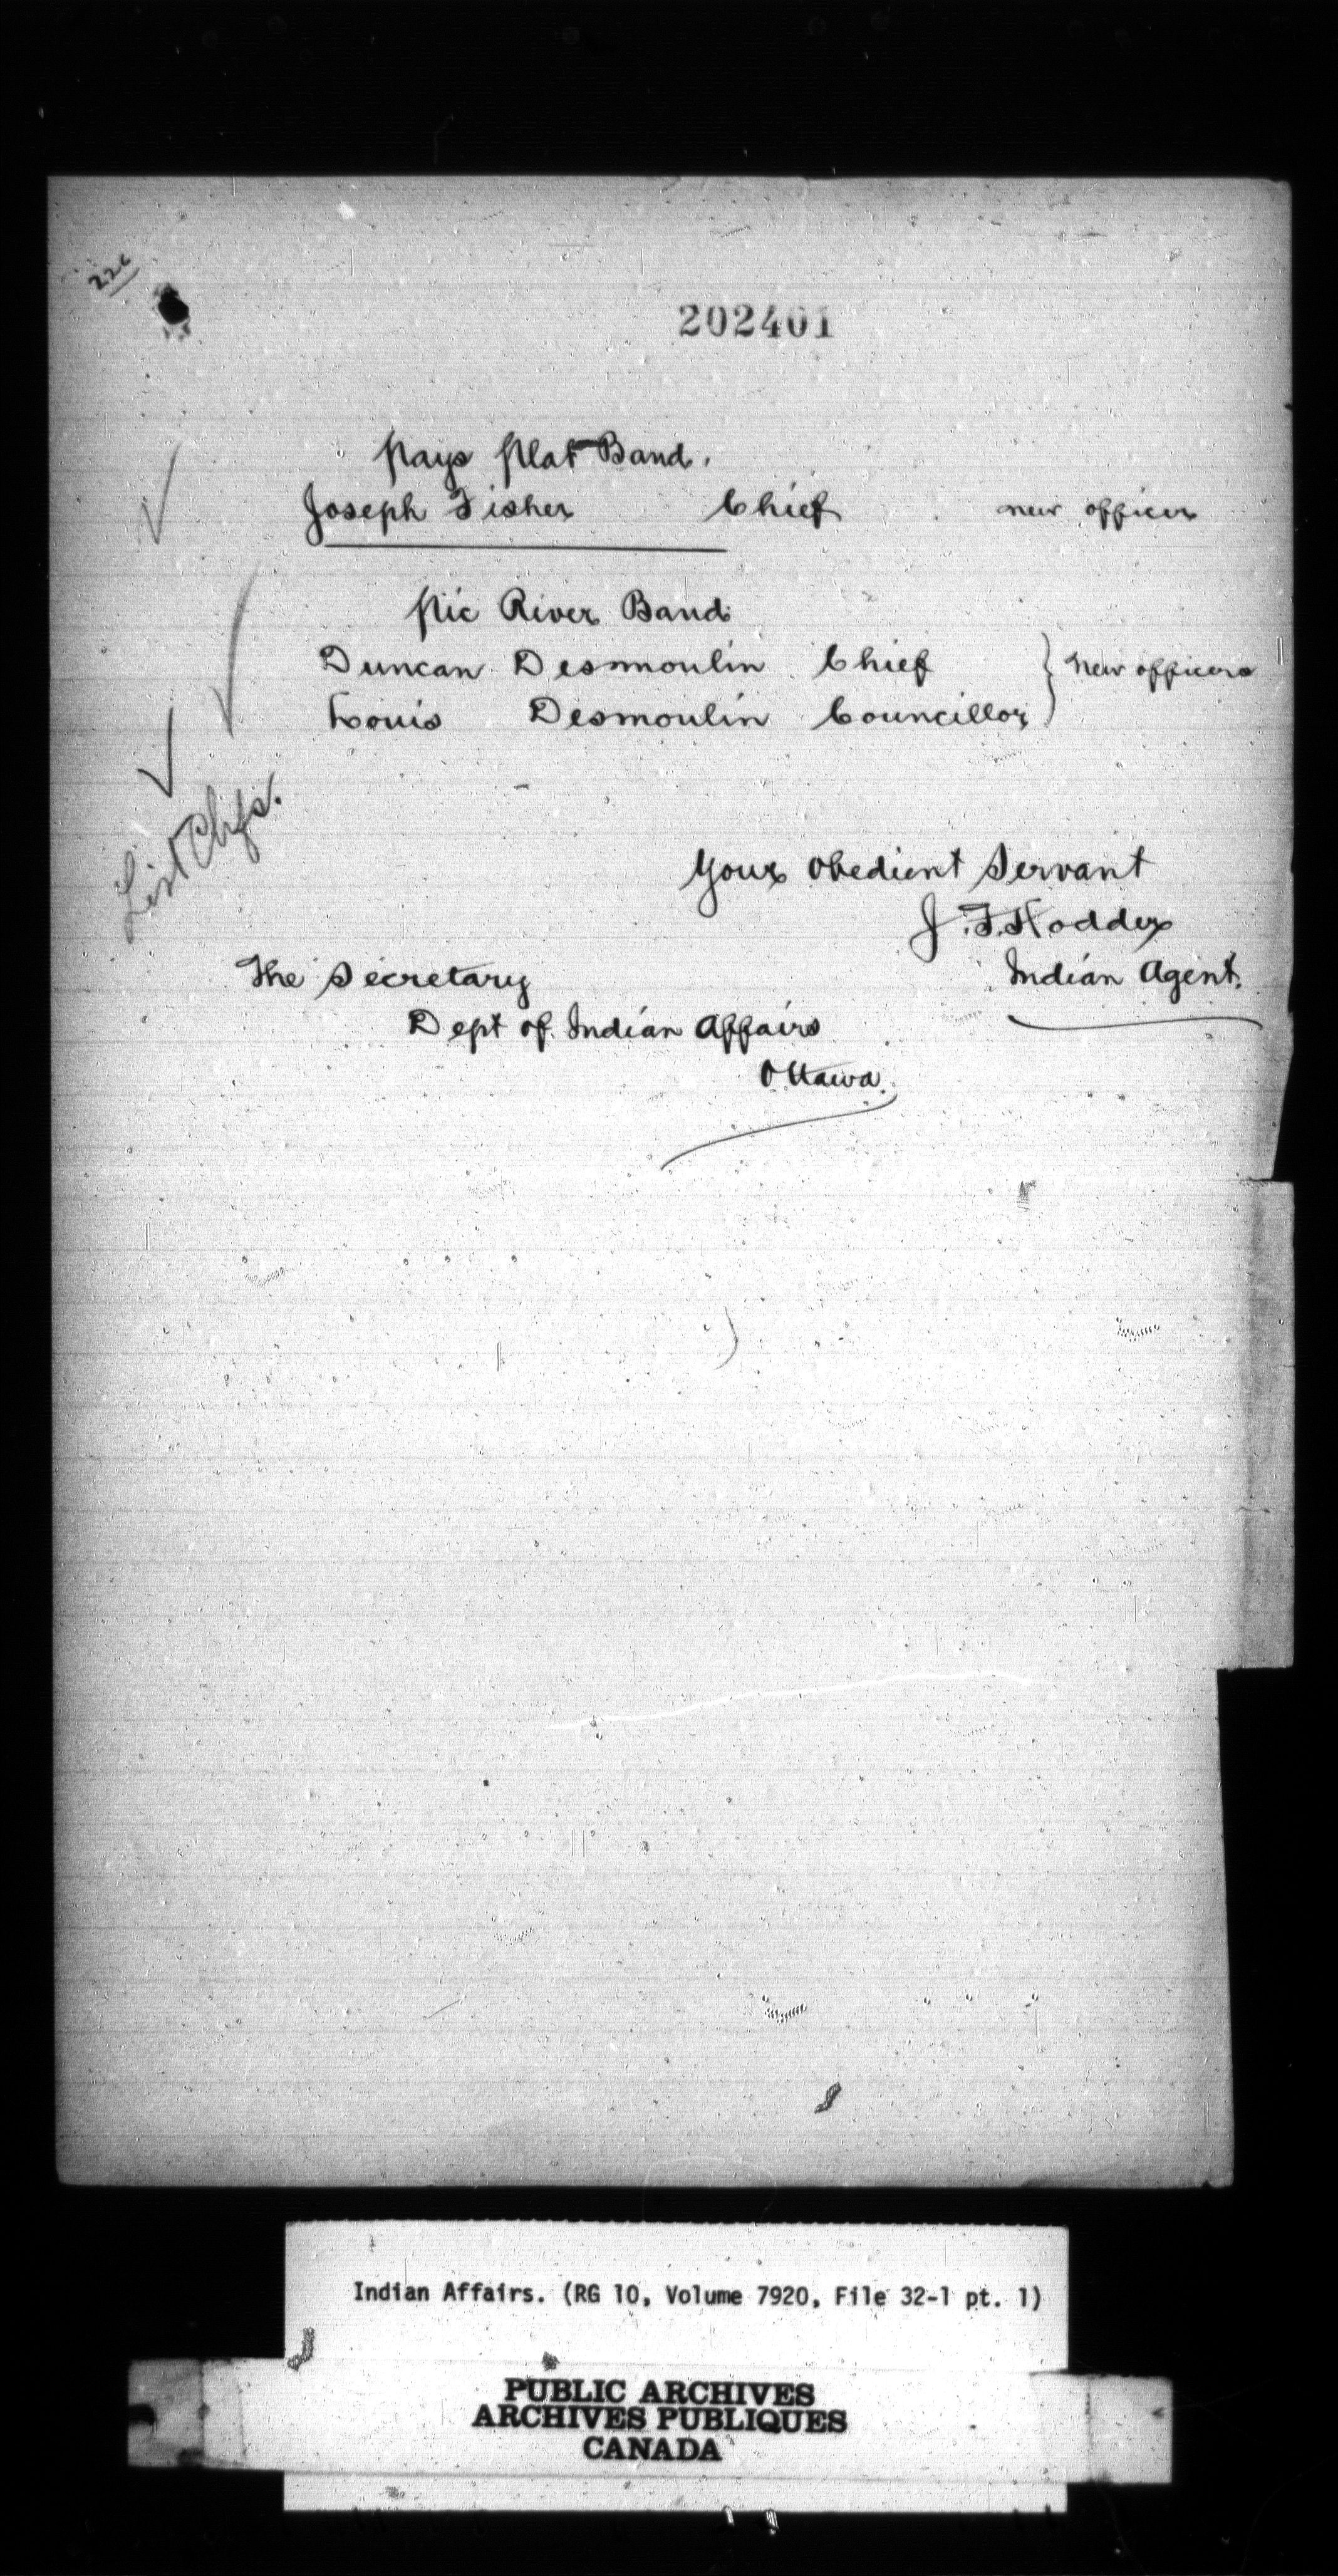 226
202401
Pays Plat Band.
Joseph Fisher Chief new officer
Pic River Band
Duncan Desmoulin Chief } new officers
Louis Desmoulin Councillor
List Chfs.
Your Obedient Servant
J. F. Hodder
Indian Agent.
The Secretary
Dept of Indian Affairs
Ottawa.
Indian Affairs. (RG 10, Volume 7920, File 32-1 pt. 1)
PUBLIC ARCHIVES
ARCHIVES PUBLIQUES
CANADA